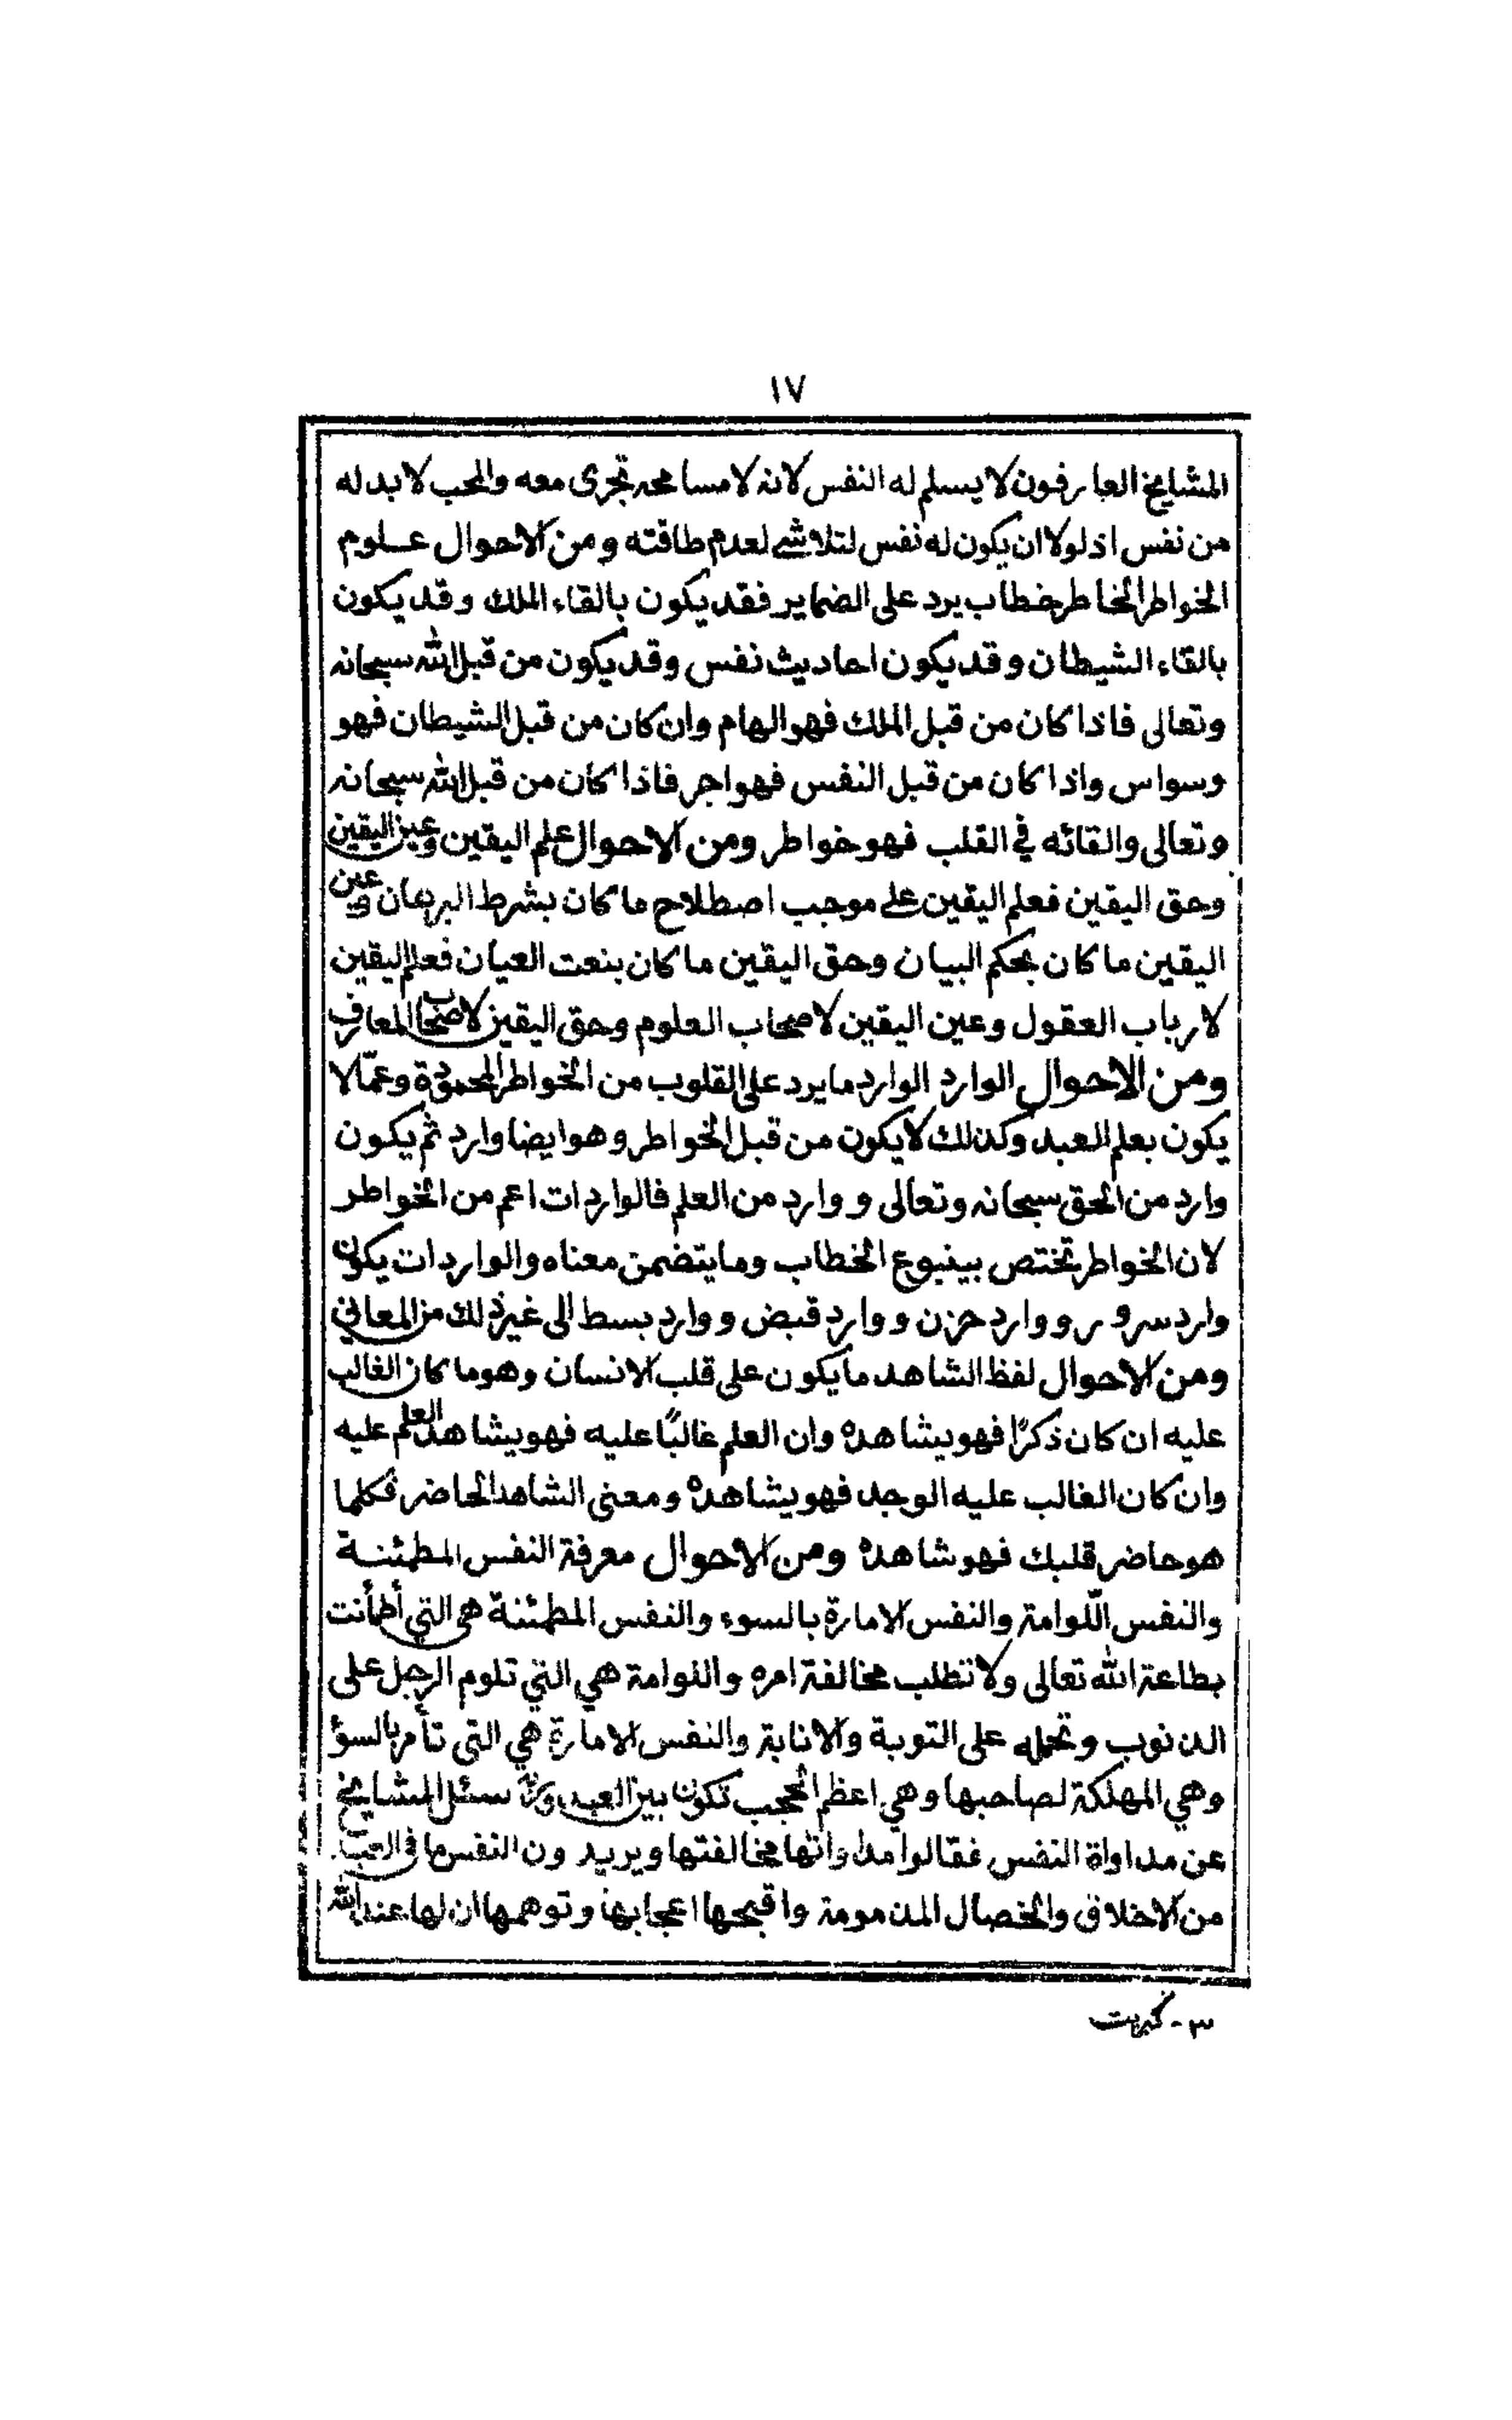 ١٧
المشايخ العارفون لا يسلم له النفس لانه لا مسامحة تجرى معه والمحب لا بد له
من نفس اذ لولا ان يكون له نفس لتلاشى لعدم طاقته ومن الاحوال علوم
الخواطر الخاطر خطاب يرد على الضماير فقد يكون بالقاء الملك وقد يكون
بالقاء الشيطان وقد يكون احاديث نفس وقد يكون من قبل الله سبحانه
وتعالى فاذا كان من قبل الملك فهو الهام وان كان من قبل الشيطان فهو
وسواس واذا كان من قبل النفس فهو اجر فاذا كان من قبل الله سبحانه
وتعالى والقائه في القلب فهو خواطر ومن الاحوال علم اليقين وعين اليقين
وحق اليقين فعلم اليقين على موجب اصطلاح ما كان بشرط البرهان وعين
اليقين ما كان بحكم البيان وحق اليقين ما كان بنعت العيان فعلم اليقين
لارباب العقول وعين اليقين لاصحاب العلوم وحق اليقين لاصحاب المعارف
ومن الاحوال الوارد الوارد ما يرد على القلوب من الخواطر المحمودة وعمّا لا
يكون بعلم العبد وكذلك لا يكون من قبل الخواطر وهو ايضا وارد ثم يكون
وارد من الحق سبحانه وتعالى ووارد من العلم فالواردات اعم من الخواطر
لان الخواطر تختص بينبوع الخطاب وما يتضمن معناه والواردات يكون
وارد سرور ووارد حزن ووارد قبض ووارد بسط الى غير ذلك من المعاني
ومن الاحوال لفظ الشاهد ما يكون على قلب الانسان وهو ما كان الغالب
عليه ان كان ذكرًا فهو يشاهده وان العلم غالبًا عليه فهو يشاهد العلم عليه
وان كان الغالب عليه الوجد فهو يشاهده ومعنى الشاهد الحاضر فكلما
هو حاضر قلبك فهو شاهده ومن الاحوال معرفة النفس المطمئنة
والنفس اللّوامة والنفس الامارة بالسوء والنفس المطمئنة هى التي أطمأنت
بطاعة الله تعالى ولا تطلب مخالفة امره واللوامة هي التي تلوم الرجل على
الذنوب وتحمله على التوبة والانابة والنفس الامارة هي التى تأمر بالسؤ
وهي المهلكة لصاحبها وهي اعظم الحجب تكون بين العبد وربّه سئل المشايخ
عن مداواة النفس فقالوا مداواتها مخالفتها ويريدون النفس ما في العبد
من الاخلاق والخصال المذمومة واقبحها اعجابها وتوهمها ان لها عند الله
٣ - كبريت